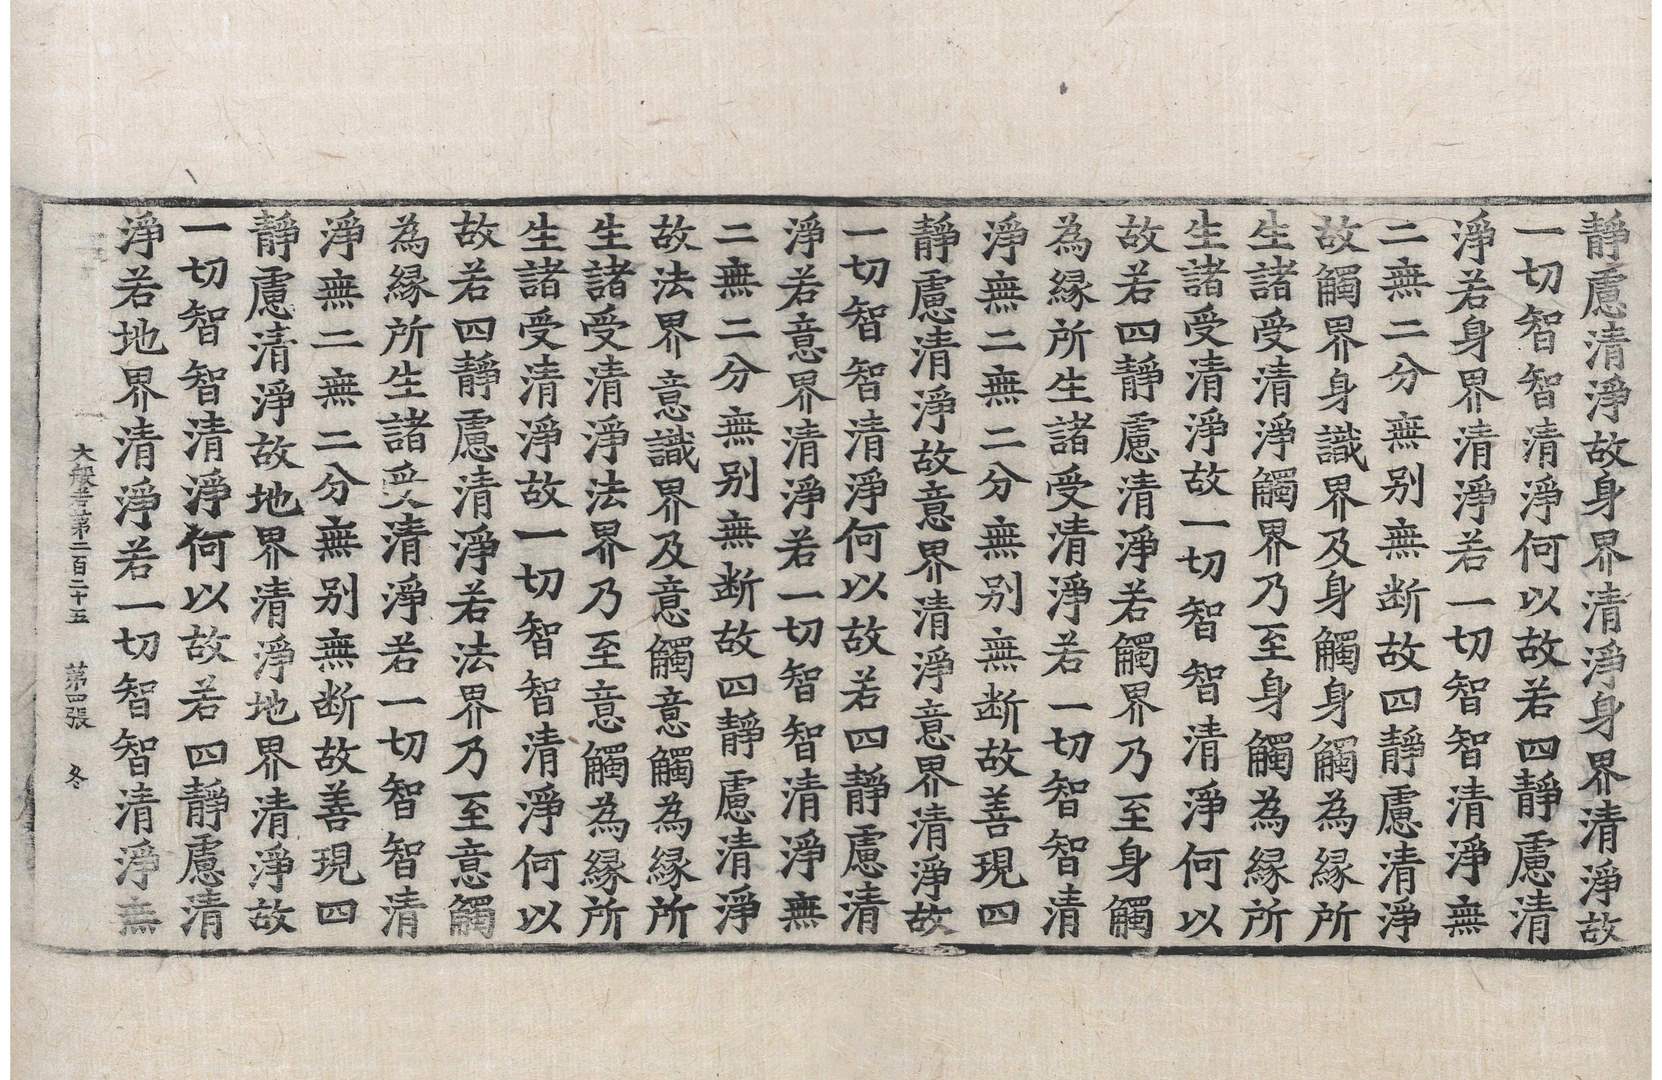 靜慮清淨故身界清淨身界清淨故
一切智智清淨何以故若四靜慮清
淨若身界清淨若一切智智清淨無
二無二分無别無断故四靜慮清淨
故觸界身識界及身觸身觸為縁所
生諸受清淨觸界乃至身觸為縁所
生諸受清淨故一切智智清淨何以
故若四靜慮清淨若觸界乃至身觸
為縁所生諸受清淨若一切智智清
淨無二無二分無别無断故善現四
靜慮清淨故意界清淨意界清淨故
一切智智清淨何以故若四靜慮清
淨若意界清淨若一切智智清淨無
二無二分無别無断故四靜慮清淨
故法界意識界及意觸意觸為縁所
生諸受清淨法界乃至意觸為縁所
生諸受清淨故一切智智清淨何以
故若四靜慮清淨若法界乃至意觸
為縁所生諸受清淨若一切智智清
淨無二無二分無别無断故善現四
靜慮清淨故地界清淨地界清淨故
一切智智清淨何以故若四靜慮清
淨若地界清淨若一切智智清淨無
大般若第二百二十五 第四張 冬